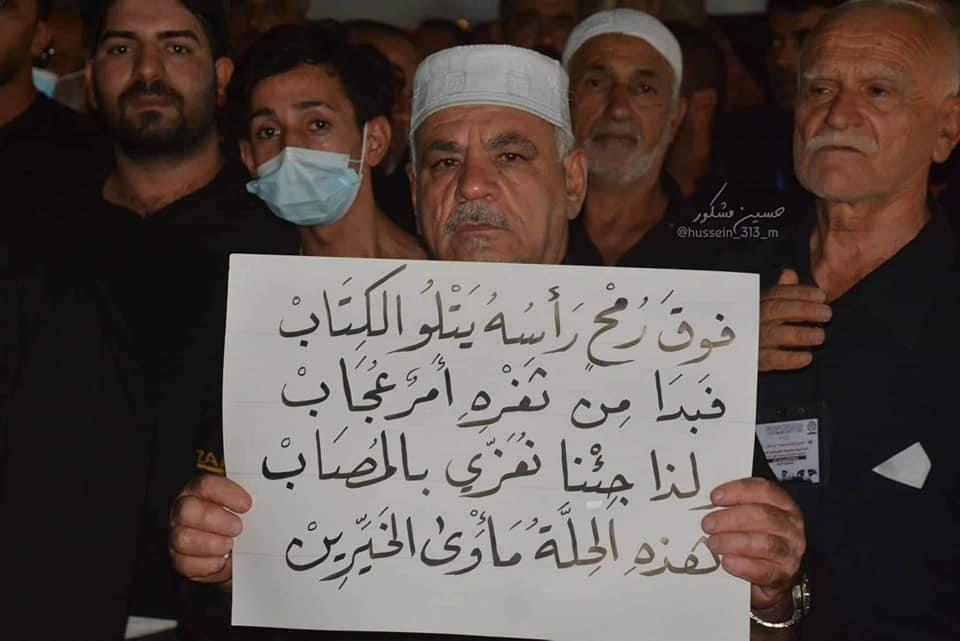 حسين مشكور
@hussein_313_m
فَوقَ رُمْحٍ رَأسُهُ يَتْلُو الكِتَابْ
فَبَدَا مِنْ ثَغْرِهِ أمرٌ عُجَابْ
لِذا جِئْنا نُعَزِّي بالمُصَابْ
هَذهِ الحِلَّةُ مَأوْىٰ الخَيِّرِينْ